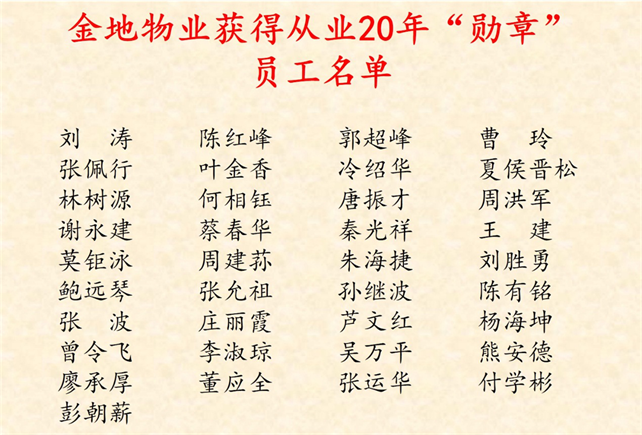 金地物业获得从业20年“勋章”
员工名单
刘 涛 陈红峰 郭超峰 曹 玲
张佩行 叶金香 冷绍华 夏侯晋松
林树源 何相钰 唐振才 周洪军
谢永建 蔡春华 秦光祥 王 建
莫钜泳 周建荪 朱海捷 刘胜勇
鲍远琴 张允祖 孙继波 陈有铭
张 波 庄丽霞 芦文红 杨海坤
曾令飞 李淑琼 吴万平 熊安德
廖承厚 董应全 张运华 付学彬
彭朝薪